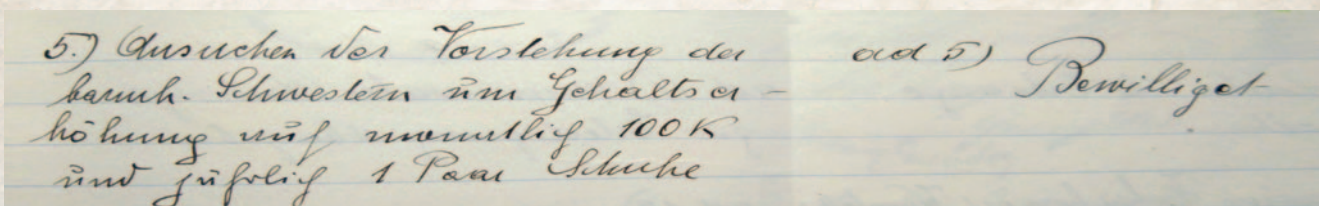 5.) Ansuchen der Vorstehung der
barmh. Schwestern um Gehaltser-
höhung auf monatlich 100 K
und jährlich 1 Paar Schuhe
ad 5) Bewilligt